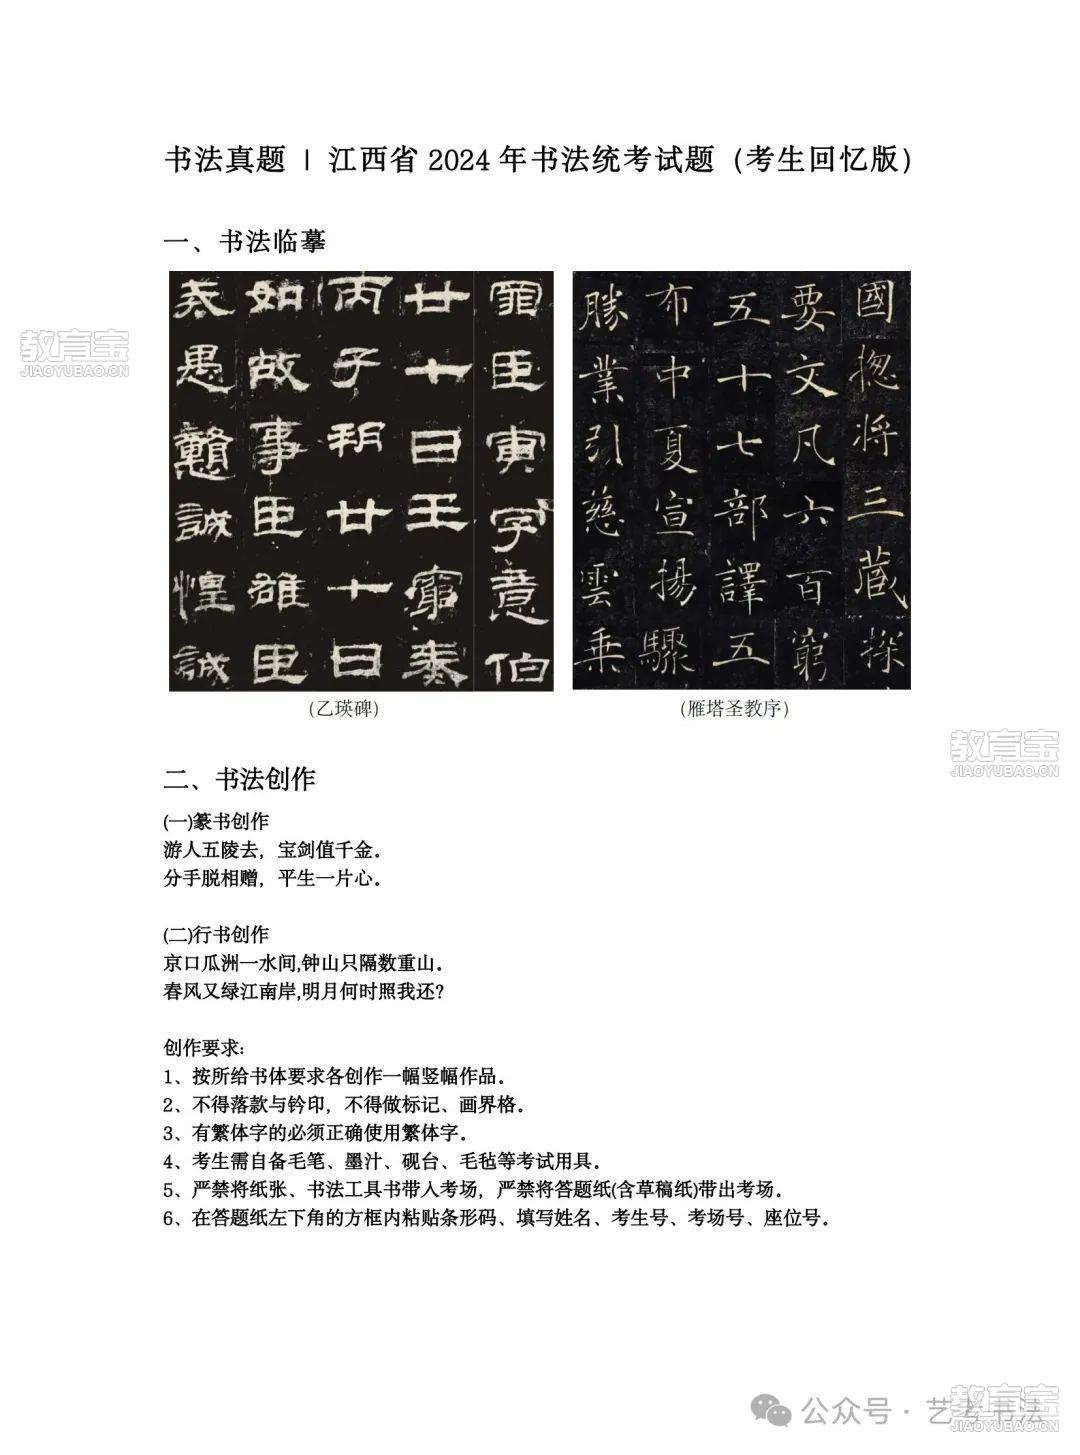 书法真题 | 江西省 2024 年书法统考试题（考生回忆版）
一、书法临摹
罪臣寅字意伯
廿七日壬寅奏
丙子朔廿七日
如故事臣雄臣
戒愚戇誠惶誠
國揔將三藏探
要文凡六百窮
五十七部譯五
布中夏宣揚驟
勝業引慈雲乗
(乙瑛碑)
(雁塔圣教序)
二、书法创作
(一)篆书创作
游人五陵去，宝剑值千金。
分手脱相赠，平生一片心。
(二)行书创作
京口瓜洲一水间,钟山只隔数重山。
春风又绿江南岸,明月何时照我还?
创作要求:
1、按所给书体要求各创作一幅竖幅作品。
2、不得落款与钤印，不得做标记、画界格。
3、有繁体字的必须正确使用繁体字。
4、考生需自备毛笔、墨汁、砚台、毛毡等考试用具。
5、严禁将纸张、书法工具书带入考场，严禁将答题纸(含草稿纸)带出考场。
6、在答题纸左下角的方框内粘贴条形码、填写姓名、考生号、考场号、座位号。
教育宝
JIAOYUBAO.CN
教育宝
JIAOYUBAO.CN
教育宝
JIAOYUBAO.CN
公众号 · 艺考书法